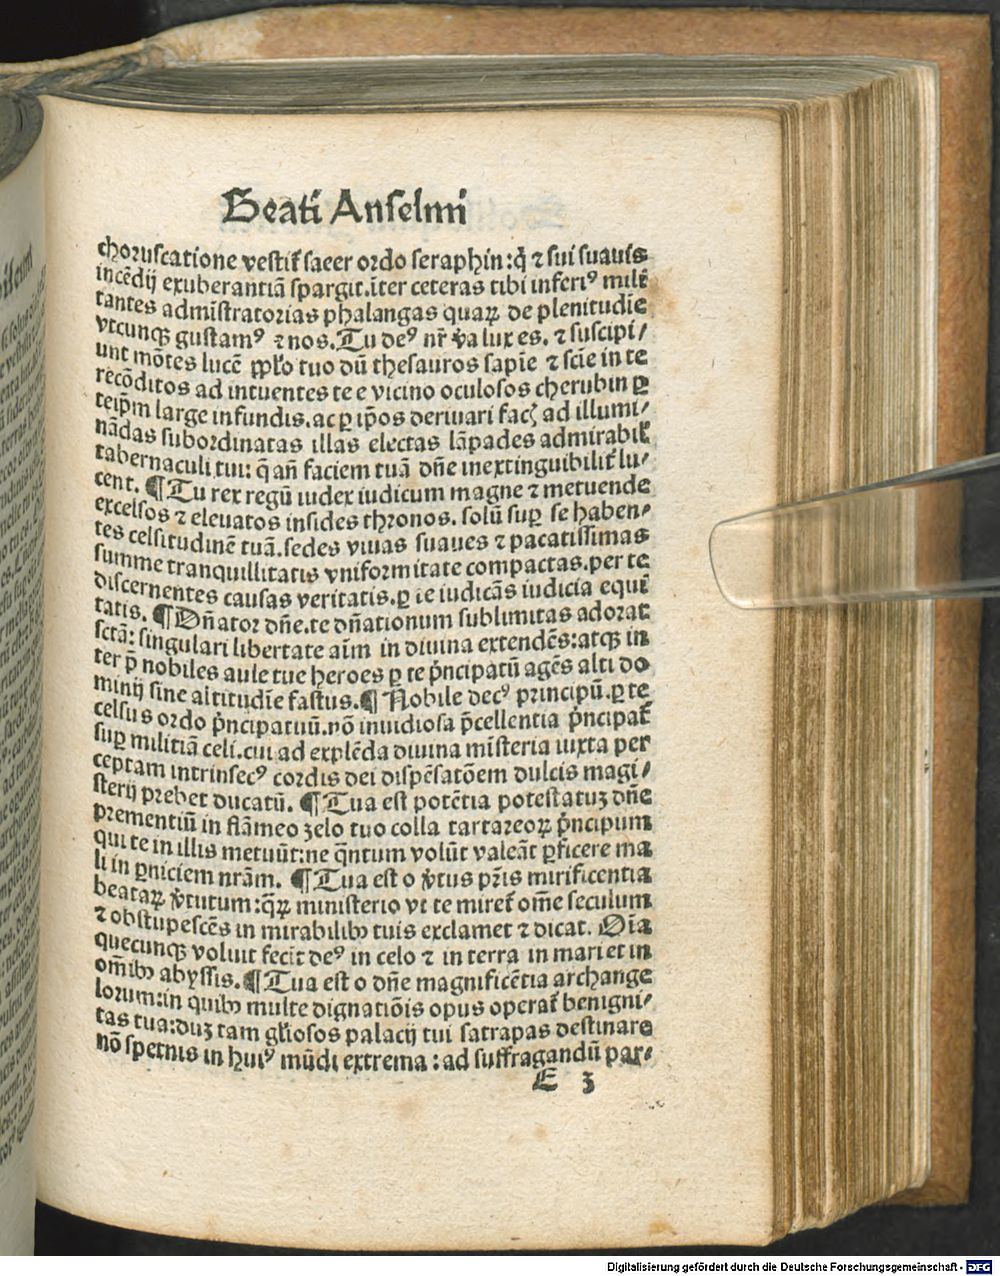 Beati Anselmi
choruscatione vestit̃ sacer ordo seraphin:q̃ ⁊ sui suauis
incẽdij exuberantiã spargit.ĩter ceteras tibi inferiꝰ mili
tantes admĩstratorias phalangas quaꝝ de plenitudĩe
vtcunqꝫ gustamꝰ ⁊ nos.Tu deꝰ nr̃ v̓a lux es. ⁊ suscipi/
unt mõtes lucẽ pp̃lo tuo dũ thesauros sapĩe ⁊ scĩe in te
recõditos ad intuentes te e vicino oculosos cherubin ꝑ
teip̃m large infundis.ac ꝑ ip̃os deriuari facꝭ ad illumi/
nãdas subordinatas illas electas lãpades admirabil̃
tabernaculi tui: q̃ añ faciem tuã dñe inextinguibilit̃ lu/
cent. ¶ Tu rex regũ iudex iudicum magne ⁊ metuende
excelsos ⁊ eleuatos insides thronos. solũ suꝑ se haben/
tes celsitudinẽ tuã.sedes viuas suaues ⁊ pacatissimas
summe tranquillitatis vniformitate compactas.per te
discernentes causas veritatis.ꝑ te iudicãs iudicia equi
tatis. ¶ Dñator dñe.te dñationum sublimitas adorat
sctã: singulari libertate aĩm in diuina extendẽs:atqꝫ in
ter p̃ nobiles aule tue heroes ꝑ te p̓ncipatũ agẽs alti do
minij sine altitudĩe fastus.¶ Nobile decꝰ principũ.ꝑ te
celsus ordo p̓ncipatuũ.nõ inuidiosa p̃cellentia p̓ncipat̃
suꝑ militiã celi.cui ad explẽda diuina misteria iuxta per
ceptam intrinsecꝰ cordis dei dispẽsatõem dulcis magi/
sterij prebet ducatũ. ¶ Tua est potẽtia potestatuꝫ dñe
prementiũ in flãmeo zelo tuo colla tartareoꝝ p̓ncipum
qui te in illis metuũt:ne q̃ntum volũt valeãt ꝑficere ma
li in ꝑniciem nrãm. ¶ Tua est o v̓tus pr̃is mirificentia
beataꝝ v̓tutum:qꝝ ministerio vt te miret̃ om̃e seculum
⁊ obstupescẽs in mirabilibꝫ tuis exclamet ⁊ dicat. Oĩa
quecunqꝫ voluit fecit deꝰ in celo ⁊ in terra in mari et in
om̃ibꝫ abyssis.¶ Tua est o dñe magnificẽtia archange
lorum:in quibꝫ multe dignatiõis opus operat̃ benigni/
tas tua:duꝫ tam gl̃iosos palacij tui satrapas destinare
nõ spernis in huiꝰ mũdi extrema : ad suffragandũ par/
E 3
Digitalisierung gefördert durch die Deutsche Forschungsgemeinschaft - DFG